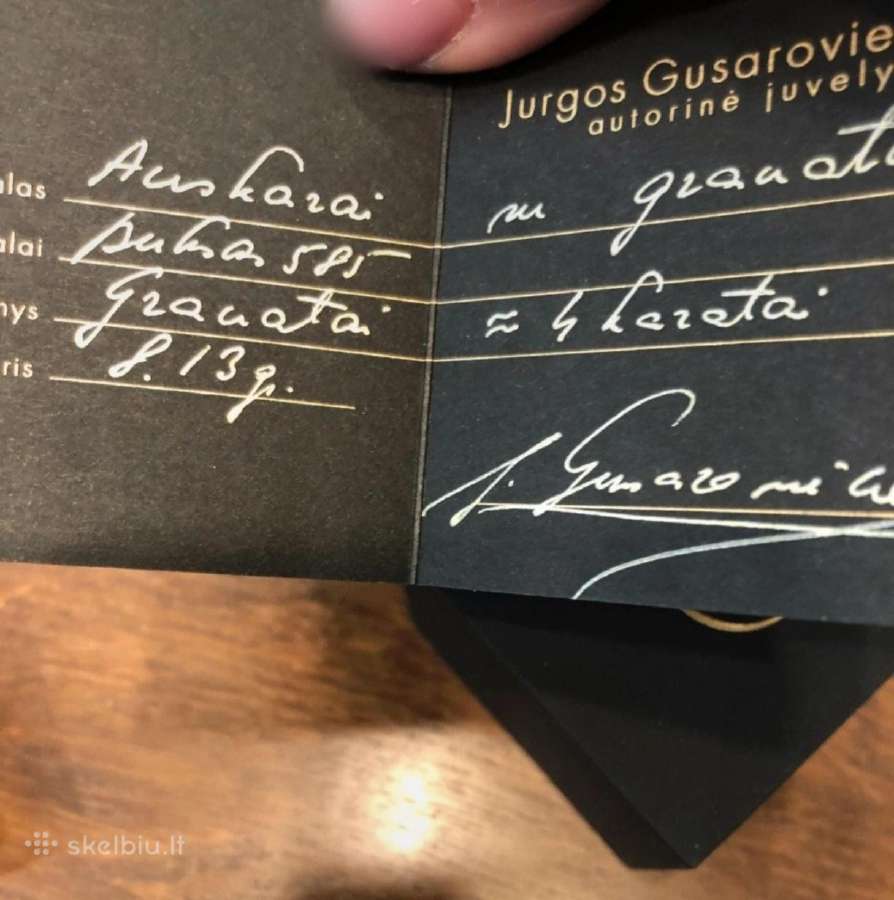 Jurgos Gusarovie
autorinė juvely
alas Auskarai su granata
alai auksas 585
nys Granatai ≈ 4 karatai
ris 8.13 g.
J. Gusarovič
skelbiu.lt